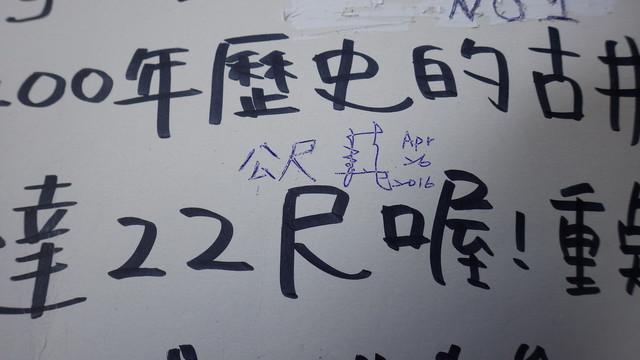 NO1
00年歷史的古井
公尺
Apr
26
2016
達22尺喔!重